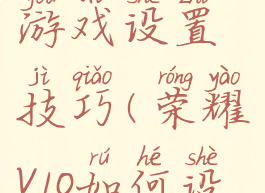 游戏设置
jì qiǎo róng yào
技巧(荣耀
rú hé shè
V10如何设